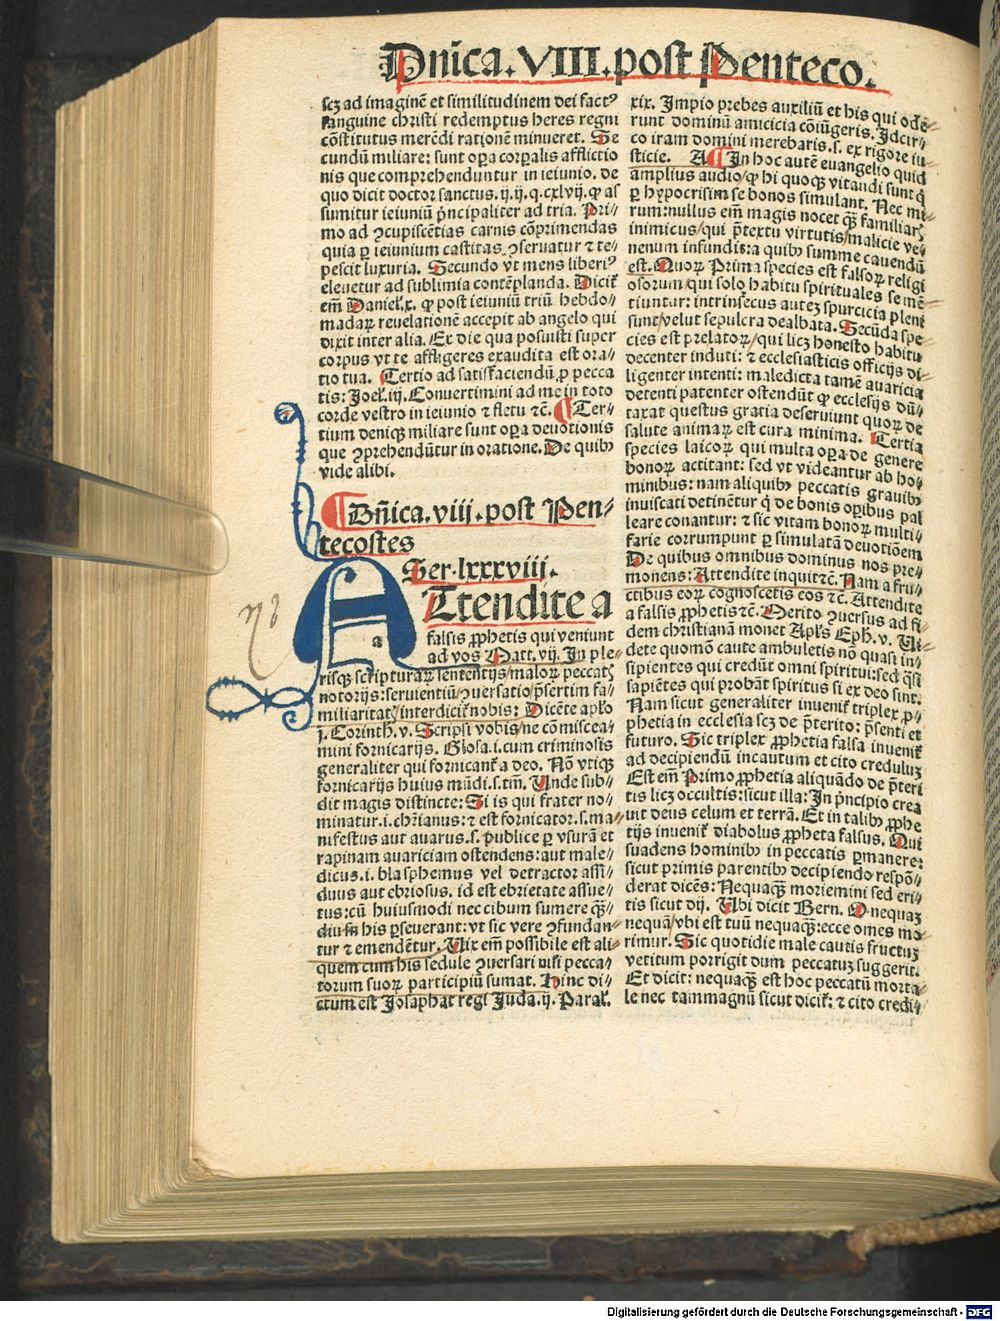 Dñica.VIII.post Penteco.
scꝫ ad imaginē et similitudinem dei factꝰ
sanguine christi redemptus heres regni
cōstitutus mercēdi rationē minueret. Se
cundū miliare: sunt oꝑa corꝑalis afflictio
nis que comprehenduntur in ieiunio. de
quo dicit doctor sanctus.ij.ij.q.cxlvij.ꝙ as
sumitur ieiuniū p̄ncipaliter ad tria. Pri⸗
mo ad ꝯcupiscētias carnis cōprimendas
quia ꝑ ieiunium castitas ꝯseruatur ⁊ te⸗
pescit luxuria. Secundo vt mens liberiꝰ
eleuetur ad sublimia contēplanda. Dicit̄
em̄ Daniel.x. ꝙ post ieiuniū triū hebdo⸗
madaꝝ reuelationē accepit ab angelo qui
dixit inter alia. Ex die qua posuisti super
corpus vt te affligeres exaudita est ora⸗
tio tua. Tertio ad satisfaciendū ꝓ pecca
tis: Joel.iij. Conuertimini ad me in toto
corde vestro in ieiunio ⁊ fletu ⁊c̄. ¶ Ter⸗
tium deniqꝫ miliare sunt oꝑa deuotionis
que ꝯprehendūtur in oratione. De quibꝰ
vide alibi.
¶ Dñica.viij.post Pen⸗
tecostes
Ser.lxxxviij.
ATtendite a
a falsis ꝓphetis qui veniunt
ad vos Matt.vij. In ple⸗
risqꝫ scripturaꝝ sententijs/maloꝝ peccatꝭ
notorijs:seruientiū/ꝯuersatio/p̄sertim fa⸗
miliaritatꝭ/interdicit̄ nobis: Dicēte apl̄o
j. Corinth.v. Scripsi vobis/ne cōmiscea⸗
mini fornicarijs. Glosa.i.cum criminosis
generaliter qui fornicant̄ a deo. Nō vtiqꝫ
fornicarijs huius mūdi.s.tm̄. Unde sub⸗
dit magis distincte: Si is qui frater no⸗
minatur.i.chr̄ianus: ⁊ est fornicator.s.ma⸗
nifestus aut auarus.s. publice ꝑ vsurā et
rapinam auariciam ostendens: aut male⸗
dicus.i. blasphemus vel detractor assi⸗
duus aut ebriosus. id est ebrietate assue⸗
tus: cū huiusmodi nec cibum sumere qꝫ̄⸗
diu in his ꝑseuerant: vt sic vere ꝯfundan⸗
tur ⁊ emendētur. Uix em̄ possibile est ali⸗
quem cum his sedule ꝯuersari nisi pecca⸗
torum suoꝝ participiū sumat. Hinc di⸗
ctum est Josaphat regi Juda.ij. Paral̄.
xix. Impio prebes auxiliū et his qui odē⸗
runt dominū amicicia cōiūgeris. Idcir⸗
co iram domini merebaris.s. ex rigore iu⸗
sticie. A ¶ In hoc autē euangelio quid
amplius audio/ꝙ hi quoqꝫ vitandi sunt q̇
ꝑ hypocrisim se bonos simulant. Nec mi⸗
rum: nullus em̄ magis nocet qꝫ̄ familiarꝭ
inimicus/qui p̄textu virtutis/malicie ve⸗
nenum infundis: a quibꝰ summe cauendū
est. Quoꝝ Prima species est falsoꝝ religi
osorum/qui solo habitu spirituales se mē⸗
tiuntur: intrinsecus auteꝫ spurcicia pleni
sunt/velut sepulcra dealbata. Secūda spe⸗
cies est prelatoꝝ/qui licꝫ honesto habitu
decenter induti: ⁊ ecclesiasticis officijs di⸗
ligenter intenti: maledicta tamē auaricia
detenti patenter ostendūt ꝙ ecclesijs dū⸗
taxat questus gratia deseruiunt quoꝝ de
salute animaꝝ est cura minima. Tertia
species laicoꝝ qui multa oꝑa de genere
bonoꝝ actitant: sed vt videantur ab ho⸗
minibus: nam aliquibꝰ peccatis grauibꝰ
inuiscati detinētur q̇ de bonis oꝑibus pal
leare conantur: ⁊ sic vitam bonoꝝ multi⸗
farie corrumpunt ꝑ simulatā deuotiōem
De quibus omnibus dominus nos pre⸗
monens: Attendite inquit ⁊c̄. Nam a fru⸗
ctibus eoꝝ cognoscetis eos ⁊c̄. Attendite
a falsis ꝓphetis ⁊c̄. Merito ꝯuersus ad fi⸗
dem christianā monet Apl̄s Eph.v. Ui⸗
dete quomō caute ambuletis nō quasi in⸗
sipientes qui credūt omni spiritui: sed q̄si
sapiētes qui probāt spiritus si ex deo sint.
Nam sicut generaliter inuenit̄ triplex ꝓ⸗
phetia in ecclesia scꝫ de p̄terito: p̄senti et
futuro. Sic triplex ꝓphetia falsa inuenit̄
ad decipiendū incautum et cito creduluꝫ
Est em̄ Primo ꝓphetia aliquādo de p̄teri
tis licꝫ occultis: sicut illa: In p̄ncipio crea
uit deus celum et terrā. Et in talibꝰ ꝓphe
tijs inuenit̄ diabolus ꝓpheta falsus. Qui
suadens hominibꝰ in peccatis ꝑmanere:
sicut primis parentibꝰ decipiendo respō⸗
derat dicēs: Nequaqꝫ̄ moriemini sed eri⸗
tis sicut dij. Ubi dicit Bern. O nequaꝫ
nequā/vbi est tuū nequaqꝫ̄: ecce om̄es mo⸗
rimur. Sic quotidie male cautis fructuꝫ
vetitum porrigit dum peccatuꝫ suggerit.
Et dicit: nequaqꝫ̄ est hoc peccatū morta⸗
le nec tam magnū sicut dicit̄: ⁊ cito credi⸗
Digitalisierung gefördert durch die Deutsche Forschungsgemeinschaft - DFG